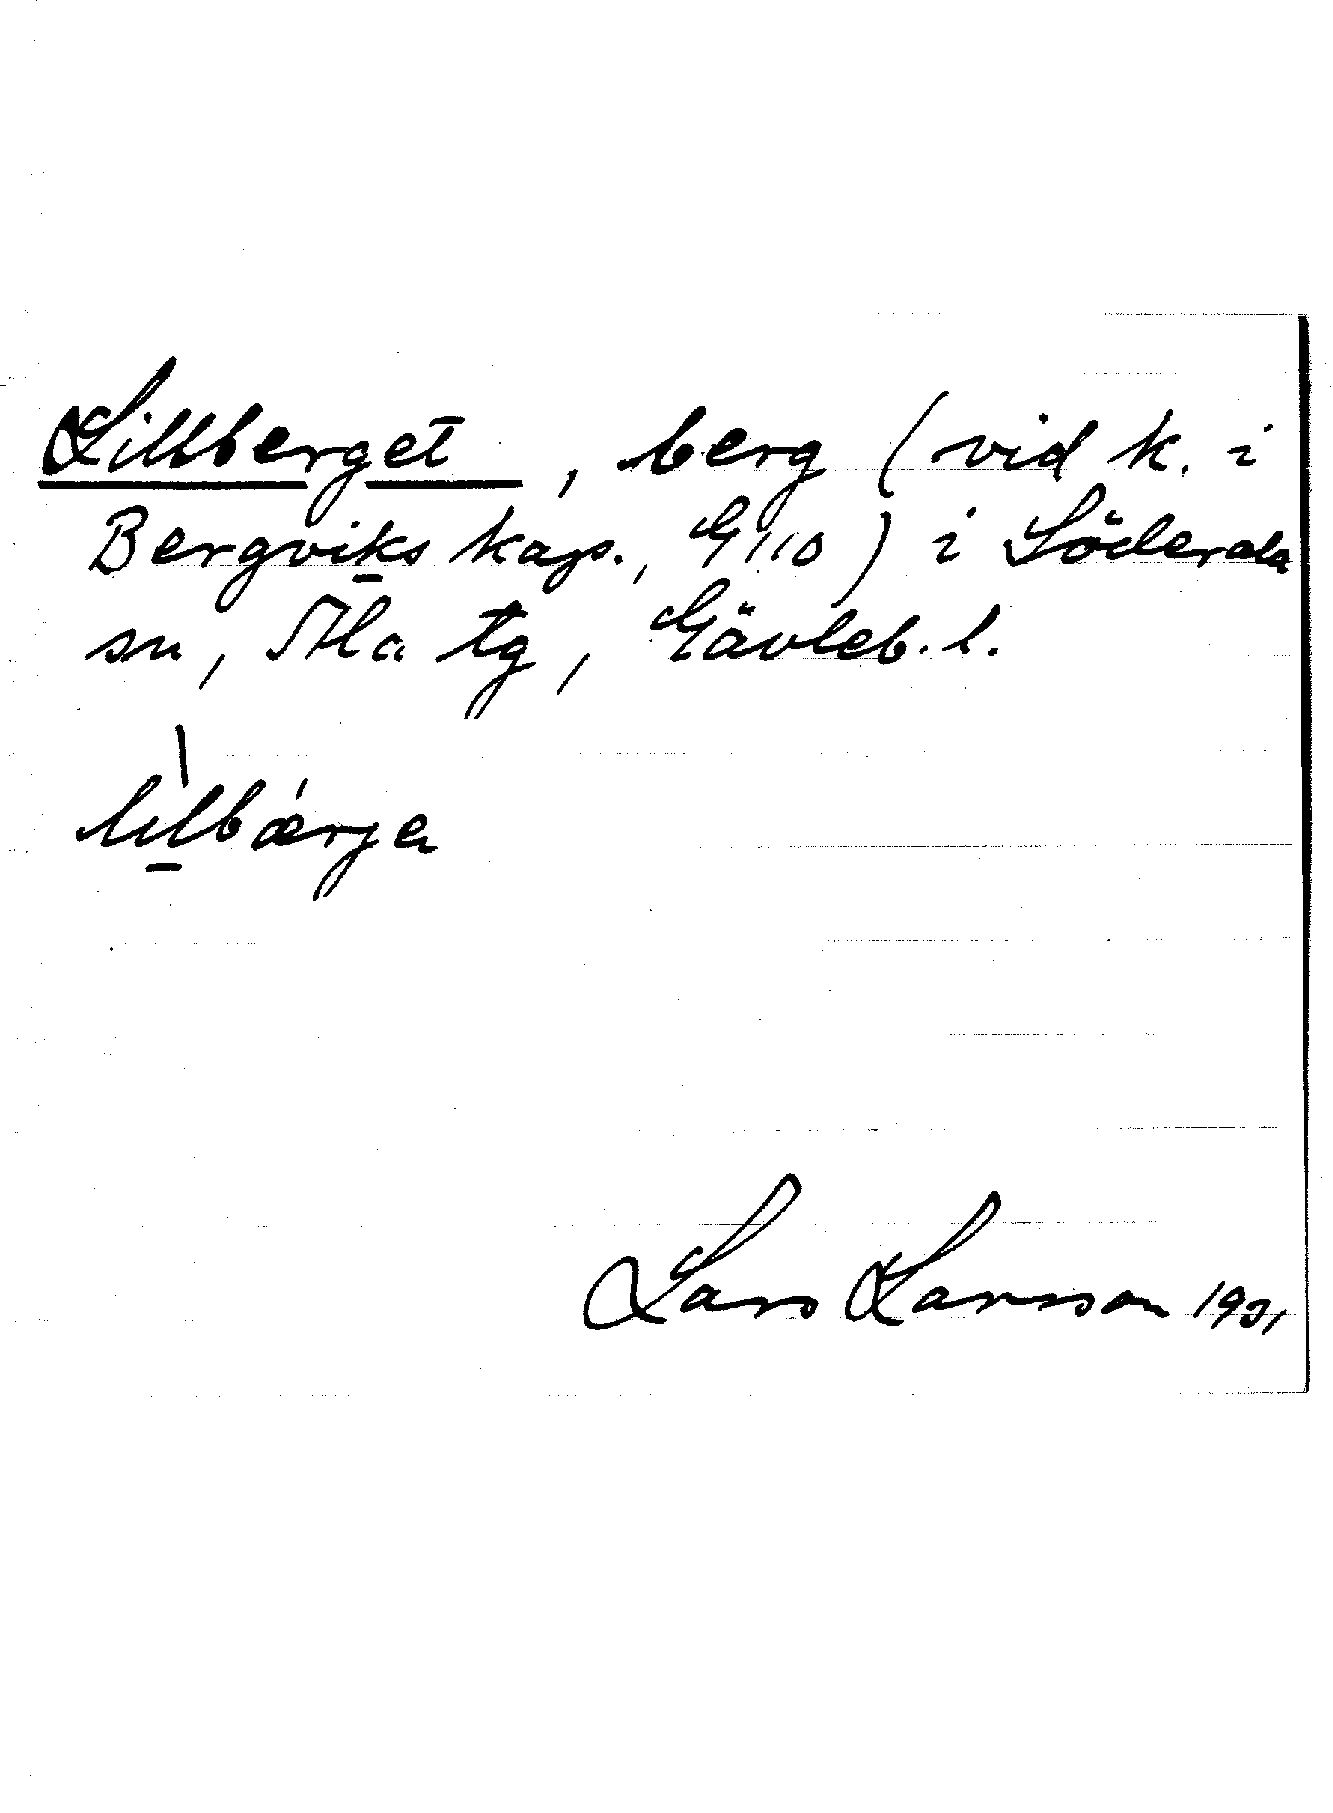 Lillberget, berg (vid k. i
Bergviks kap., G 110) i Söderala
sn, Ala tg, Gävleb. l.
lìlbærja
Lars Larsson 1931